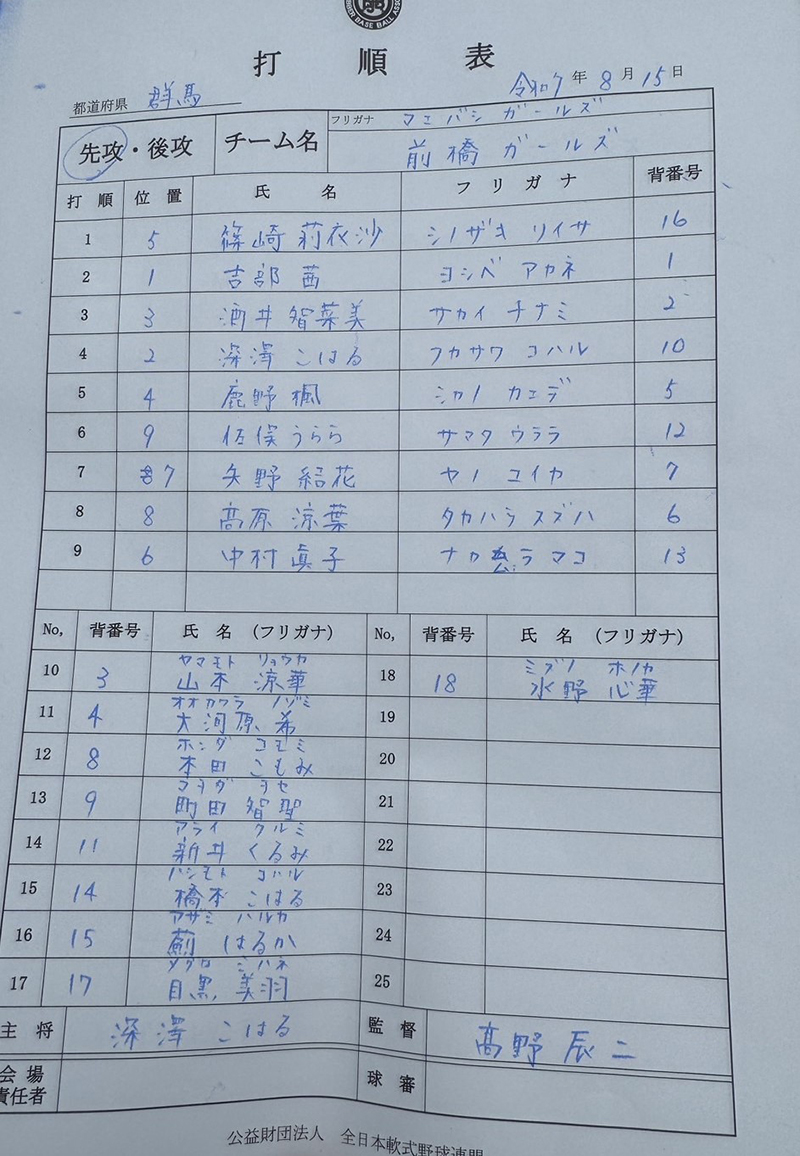 打順表
都道府県 群馬 令和7年8月15日
フリガナ マエバシ ガールズ
先攻・後攻 チーム名 前橋 ガールズ
打順 位置 氏名 フリガナ 背番号
1 5 篠崎 莉衣沙 シノザキ リイサ 16
2 1 吉部 茜 ヨシベ アカネ 1
3 3 酒井 智菜美 サカイ チナミ 2
4 2 深澤 こはる フカサワ コハル 10
5 4 鹿野 楓 シカノ カエデ 5
6 9 佐俣 うらら サマタ ウララ 12
7 7 矢野 結花 ヤノ ユイカ 7
8 8 髙原 涼葉 タカハラ スズハ 6
9 6 中村 眞子 ナカムラ マコ 13
No, 背番号 氏名(フリガナ) No, 背番号 氏名(フリガナ)
ヤマモト リョウカ ミズノ ホノカ
10 3 山本 涼華 18 18 水野 心華
オオカワラ ノゾミ
11 4 大河原 希 19
ホンダ コモミ
12 8 本田 こもみ 20
13 9 町田 智聖 21
アライ クルミ
14 11 新井 くるみ 22
ハシモト コハル
15 14 橋本 こはる 23
アザミ ハルカ
16 15 薊 はるか 24
メグロ ミハネ
17 17 目黒 美羽 25
主将 深澤 こはる 監督 髙野 辰二
会場
責任者 球審
公益財団法人 全日本軟式野球連盟